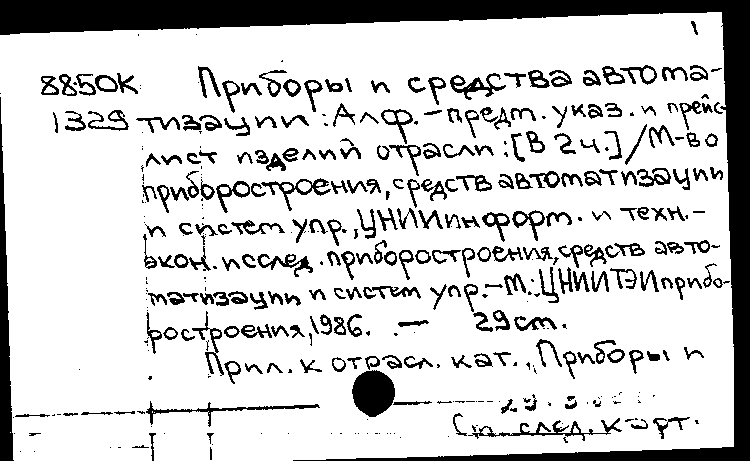 1
8850К Приборы и средства автома-
1329 тизации: Алф.-предм. указ. и прейс-
лист изделий отрасли: [В 2 ч.] / М-во
приборостроения, средств автоматизации
и систем упр., ЦНИИ информ. и техн.-
экон. исслед. приборостроения, средств авто-
матизации и систем упр.-М.: ЦНИИТЭИприбо-
ростроения, 1986. — 29 см.
Прил. к отрасл. кат. „Приборы и
См. след. карт.